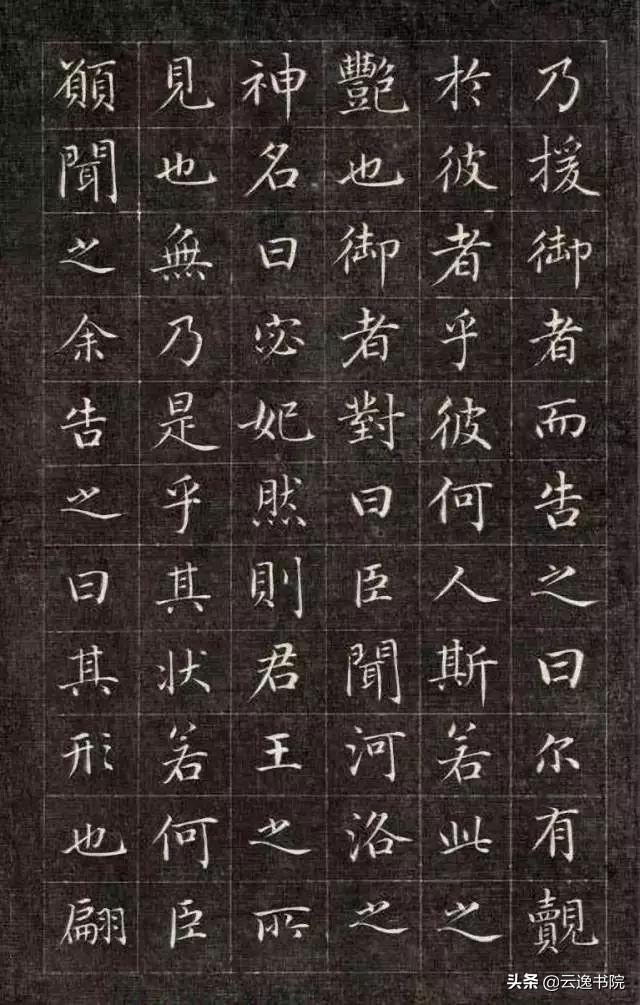 乃援御者而告之曰尔有覿
於彼者乎彼何人斯若此之
豔也御者對曰臣聞河洛之
神名曰宓妃然則君王之所
見也無乃是乎其状若何臣
願聞之余告之曰其形也翩
头条 @云逸书院